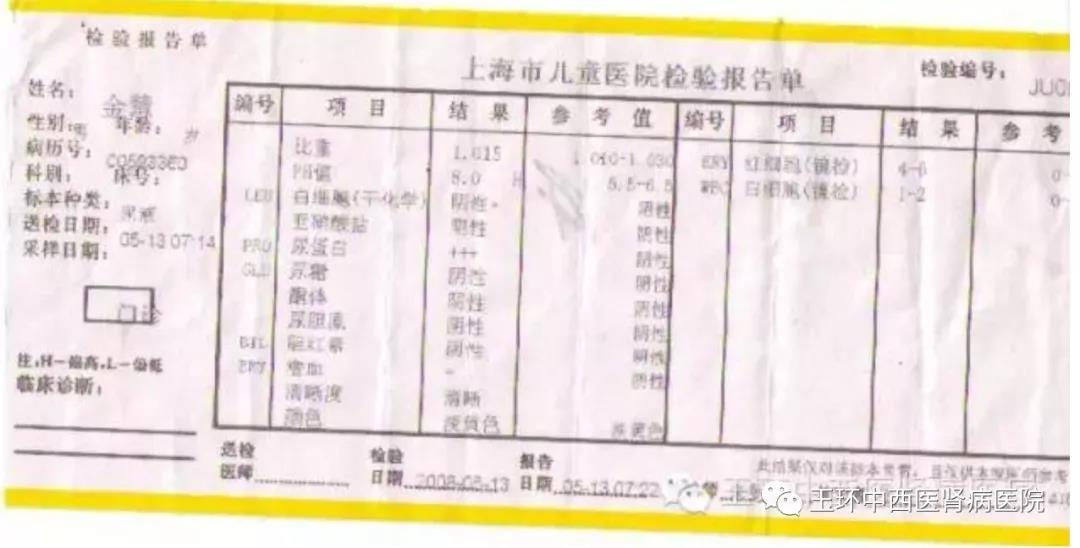 检验报告单
上海市儿童医院检验报告单
检验编号：
JU0
姓名：
性别： 年龄： 岁
病历号：
科别： 床号：
标本种类：
送检日期：
采样日期： 05-13 07:14
门诊
注，H-偏高，L-偏低
临床诊断：
编号 项目 结果 参考值 编号 项目 结果 参考
比重 1.015 1.010-1.030 ERY 红细胞(镜检) 4-6 0-
PH值 8.0 H 5.5-6.5 WBC 白细胞(镜检) 1-2 0-
LEU 白细胞(干化学) 阴性 阴性
亚硝酸盐 阴性 阴性
PRO 尿蛋白 +++ 阴性
GLU 尿糖 阴性 阴性
酮体 阴性 阴性
尿胆原 阴性 阴性
BIL 胆红素 阴性 阴性
ERY 潜血 - 阴性
清晰度 清晰
颜色 淡黄色 淡黄色
送检
医师
检验
日期 2008-05-13
报告
日期 05-13,07:22
此结果仅对该标本负责，且仅供本院医师参考
玉环中西医肾病医院